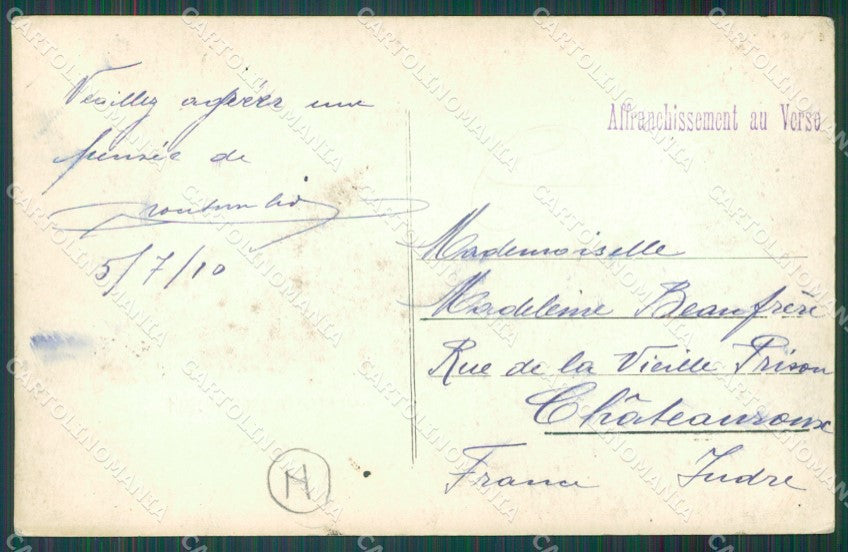 Veuillez agréer une
pensée de
5/7/10
Affranchissement au Verso
Mademoiselle
Madeleine Beaufrère
Rue de la Vieille Prison
Châteauroux
France Indre
M
CARTOLINOMANIA